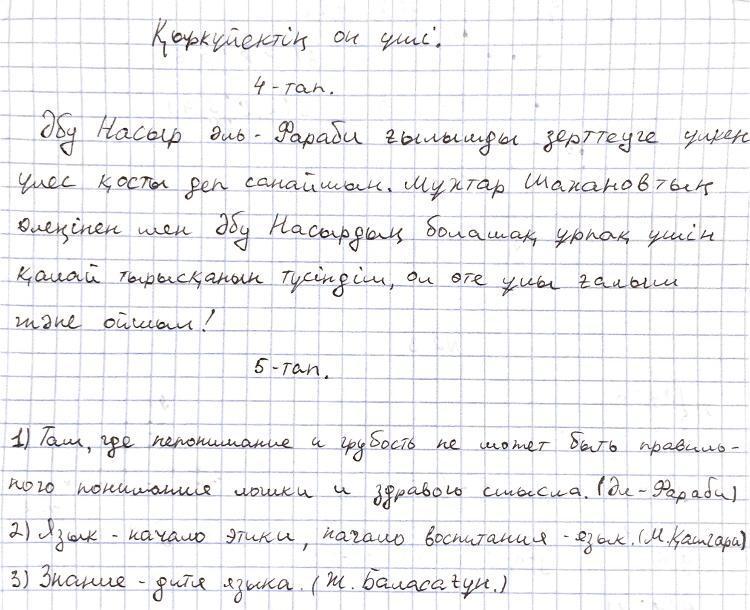 Қыркүйектің он үші.
4-тап.
Әбу Насыр әль-Фараби ғылымды зерттеуге үлкен
үлес қосты деп санаймын. Мұхтар Шахановтың
өлеңінен мен Әбу Насырдың болашақ ұрпақ үшін
қалай тырысқанын түсіндім, ол өте ұлы ғалым
және ойшыл!
5-тап.
1) Там, где непонимание и грубость не может быть правиль-
ного понимания логики и здравого смысла. (Әл-Фараби)
2) Язык - начало этики, начало воспитания - язык. (М.Қашғари)
3) Знание - дитя языка. (Ж. Баласағұн.)